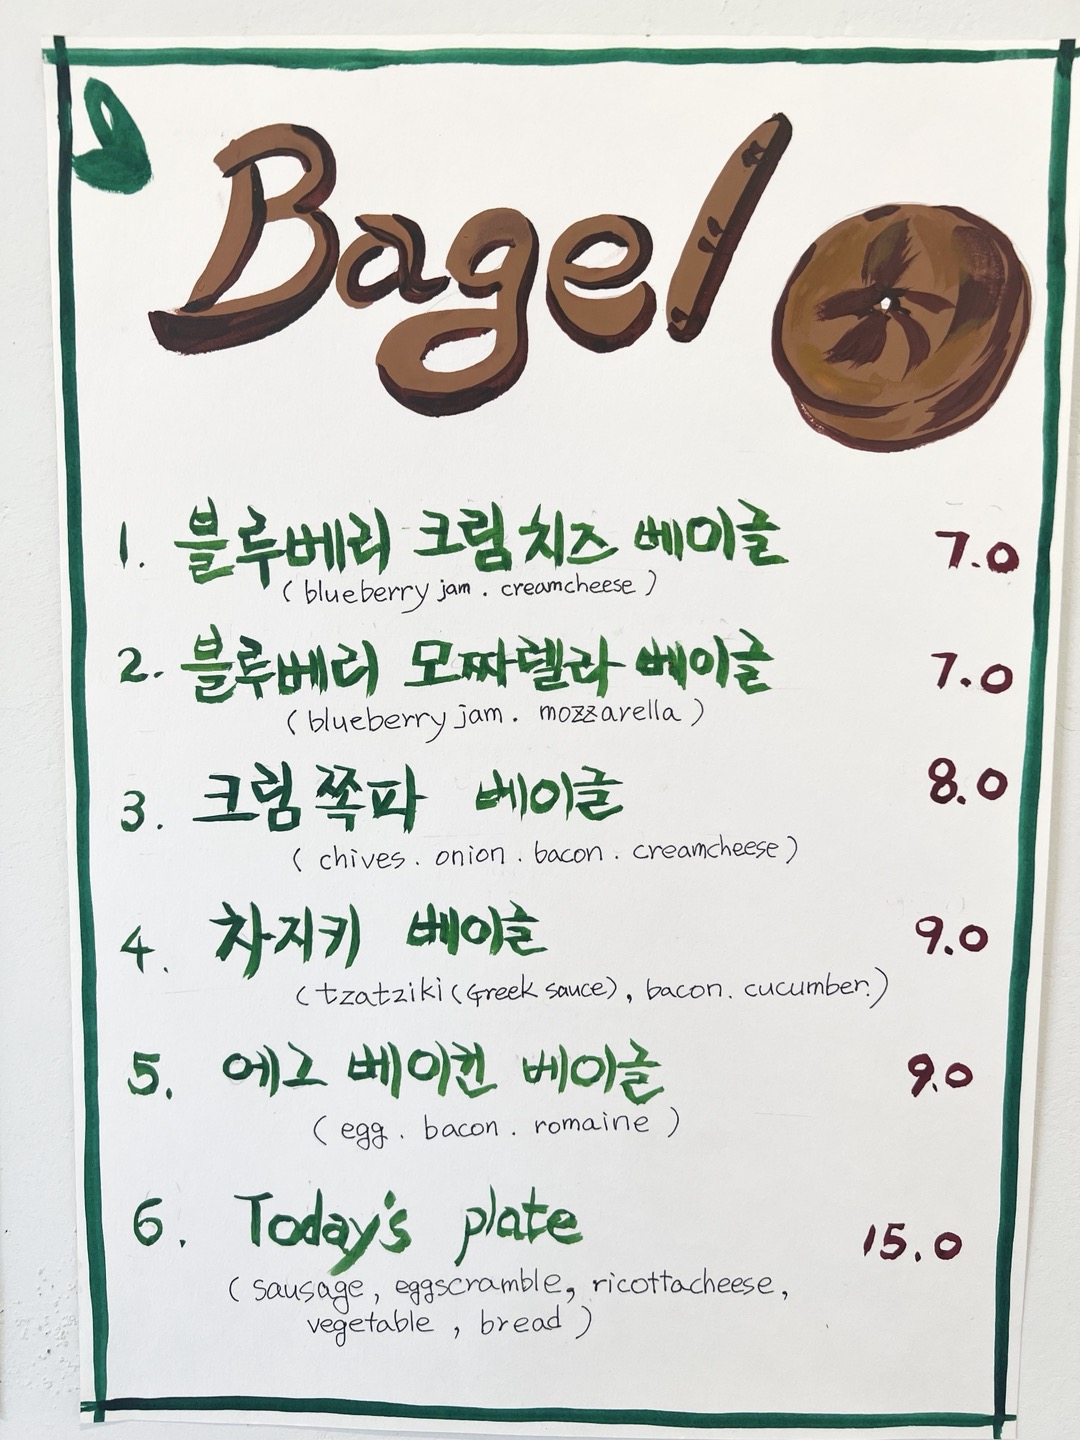 Bagel
1. 블루베리 크림치즈 베이글 7.0
(blueberry jam. creamcheese)
2. 블루베리 모짜렐라 베이글 7.0
(blueberry jam. mozzarella)
3. 크림쪽파 베이글 8.0
(chives. onion. bacon. creamcheese)
4. 차지키 베이글 9.0
(tzatziki(Greek sauce), bacon. cucumber.)
5. 에그 베이컨 베이글 9.0
(egg. bacon. romaine)
6. Today's plate 15.0
(sausage, eggscramble, ricottacheese,
vegetable, bread)